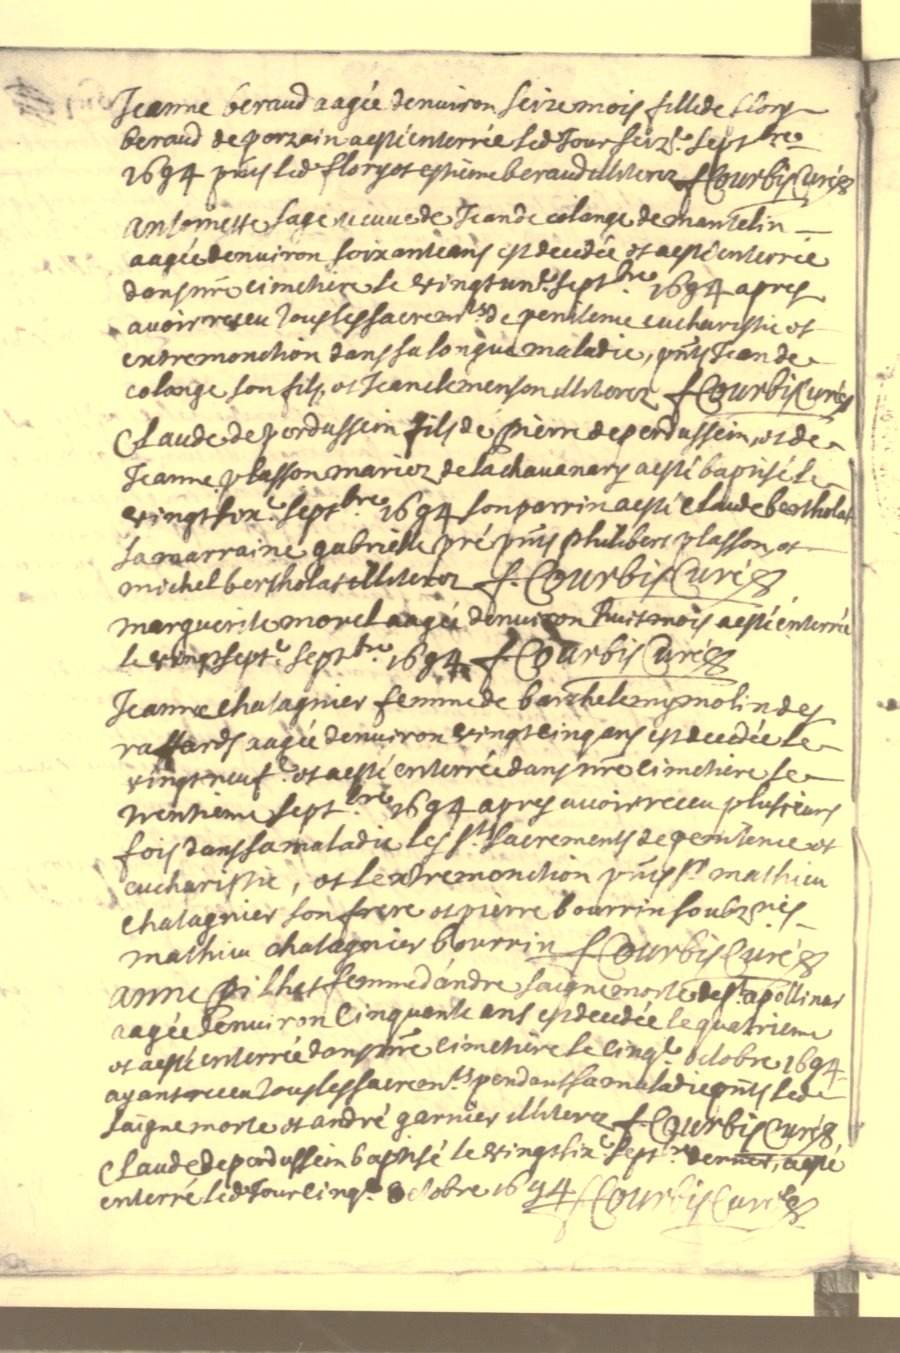 Jeanne beraud aagée denuiron seize mois fille de flory
beraud de porzain a esté enterrée led Jour seize. septbre
1694 pnts led flory et estiene beraud illiterez f Courbis Curé
antoinette sage veuue de Jean de colange de mantelin
aagée denuiron soixante ans est decedée et a esté enterrée
dans nre cimetiere le vingt un.e septbre 1694 apres
avoir receu tous les sacremts de penitence eucharistie et
extremonction dans sa longue maladie, pnts Jean de
colange son fils, et Jean clemenson illiterez f Courbis Curé
Claude deperdussein fils de pierre deperdussein, et de
Jeanne plasson mariez de la chauanary a esté baptisé le
vingt six.e septbre 1694 son parrin a esté claude bertholat
La marraine gabrielle pré pnts philibert plasson, et
michel bertholat illiterez f. Courbis Curé
marguerite morel aagée denuiron huit mois a esté enterrée
le vingt sept.e septbre 1694 f Courbis Curé
Jeanne chatagnier femme de barthelemy molin des
raffards aagée denuiron vingt cinq ans est decedée le
vingt neuf.e et a esté enterrée dans nre cimetiere le
trentieme septbre 1694 apres auoir receu plusieurs
fois dans sa maladie les sts sacrements de penitence et
eucharistie, et lextremonction pnts sr mathieu
chatagnier son frere et pierre bourrin soubznés
mathieu chatagnier bourrin f Courbis Curé
anne pilhet femme d'andre saignemorte de st apollinar
aagée denuiron Cinquante ans est decedée le quatrieme
et a esté enterrée dans nre cimetiere le cinq.e octobre 1694
ayant receu tous les sacremts pendant sa maladie pnts led
saignemorte et andré garnier illiterez f Courbis Curé,
Claude deperdussein baptisé le vingt six.e septre dernier, a esté
enterré led Jour cinq.e octobre 1694 f Courbis Curé